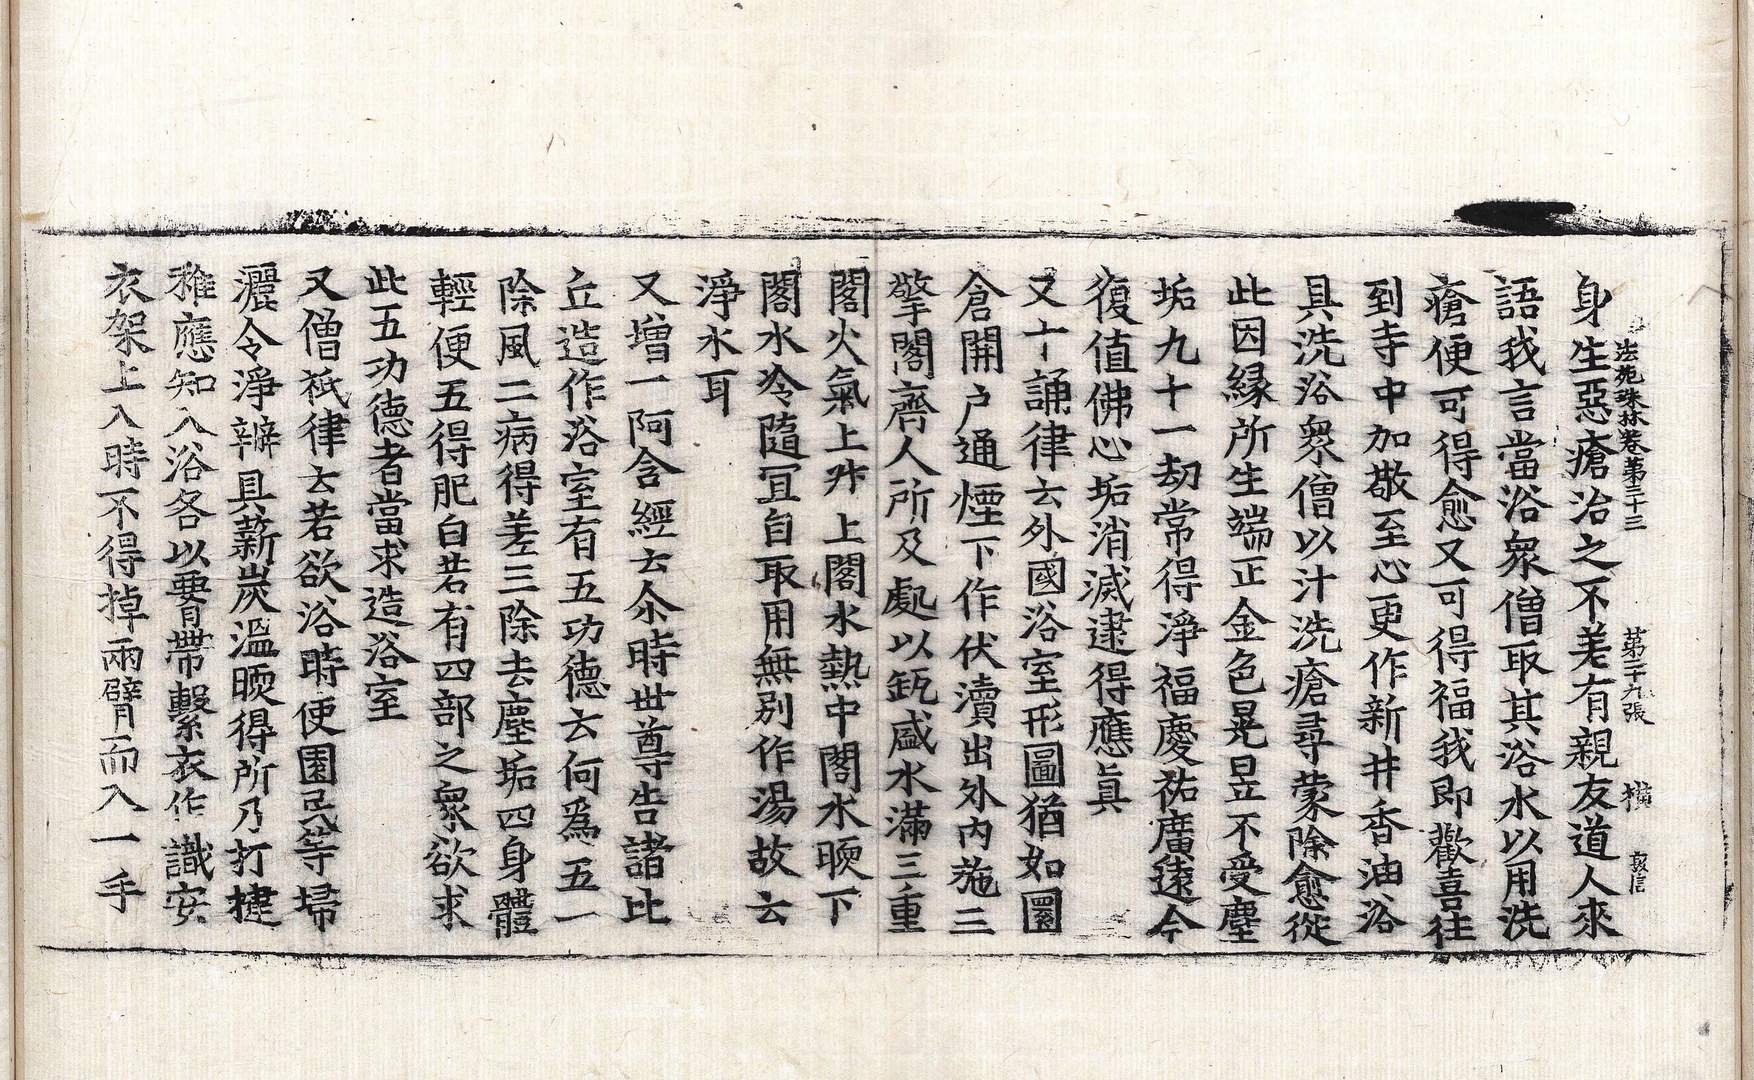 法苑珠林卷第三十三 第二十九張 橫 敦信
身生惡瘡治之不差有親友道人來
語我言當浴衆僧取其浴水以用洗
瘡便可得愈又可得福我即歡喜往
到寺中加敬至心更作新井香油浴
具洗浴衆僧以汁洗瘡尋蒙除愈從
此因緣所生端正金色晃昱不受塵
垢九十一劫常得淨福慶祐廣遠今
復值佛心垢消滅逮得應眞
又十誦律云外國浴室形圖猶如圂
倉開户通煙下作伏瀆出外內施三
擎閣齊人所及處以瓨盛水滿三重
閣火氣上昇上閣水熱中閣水暖下
閣水冷隨冝自取用無別作湯故云
淨水耳
又增一阿含經云尒時世尊告諸比
丘造作浴室有五功德云何爲五一
除風二病得差三除去塵垢四身體
輕便五得肥白若有四部之衆欲求
此五功德者當求造浴室
又僧祇律云若欲浴時使園民等掃
灑令淨辦具薪炭溫暖得所乃打揵
稚應知入浴各以䙅帶繫衣作識安
衣架上入時不得掉兩臂而入一手